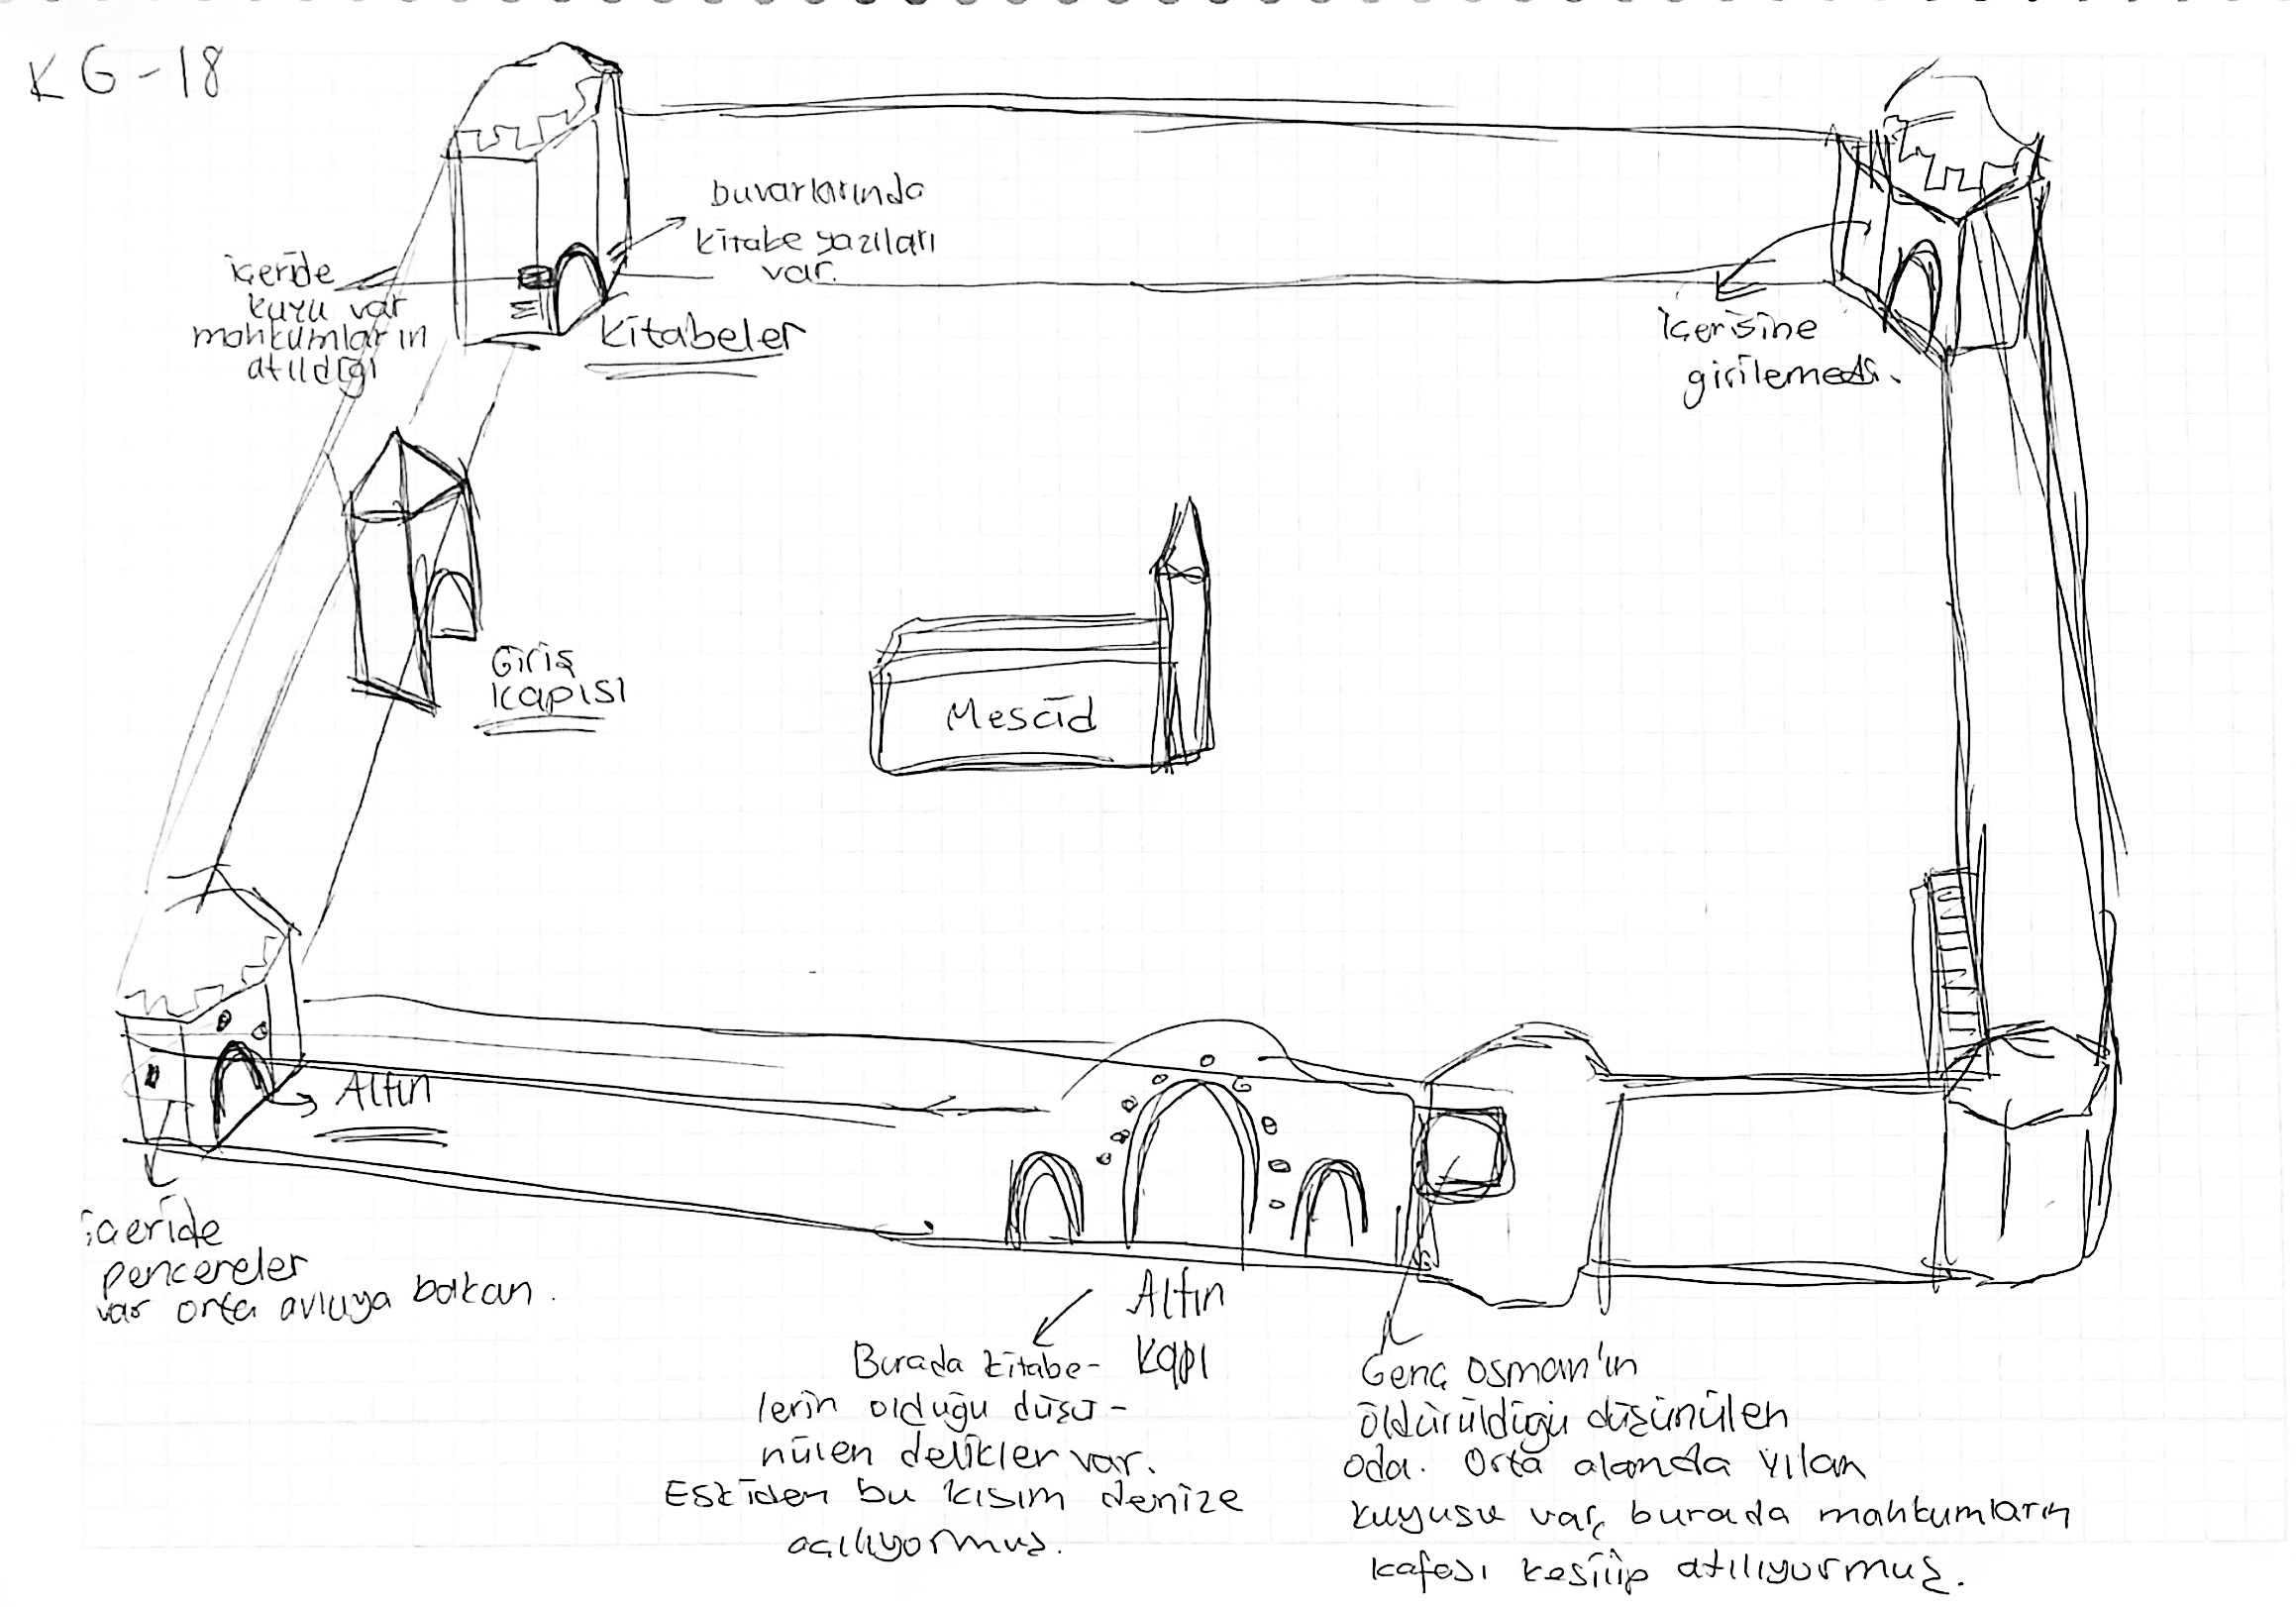 KG-18
Duvarlarında
kitabe yazıları
var.
içeride
kuyu var
mahkumların
atıldığı
Kitabeler
içerisine
girilemedi.
Giriş
kapısı
Mescid
Altın
içeride
pencereler
var orta avluya bakan.
Altın
Kapı
Burada kitabe-
lerin olduğu düşü-
nülen delikler var.
Eskiden bu kısım denize
açılıyormuş.
Genç Osman'ın
öldürüldüğü düşünülen
oda. Orta alanda yılan
kuyusu var, burada mahkumların
kafası kesilip atılıyormuş.